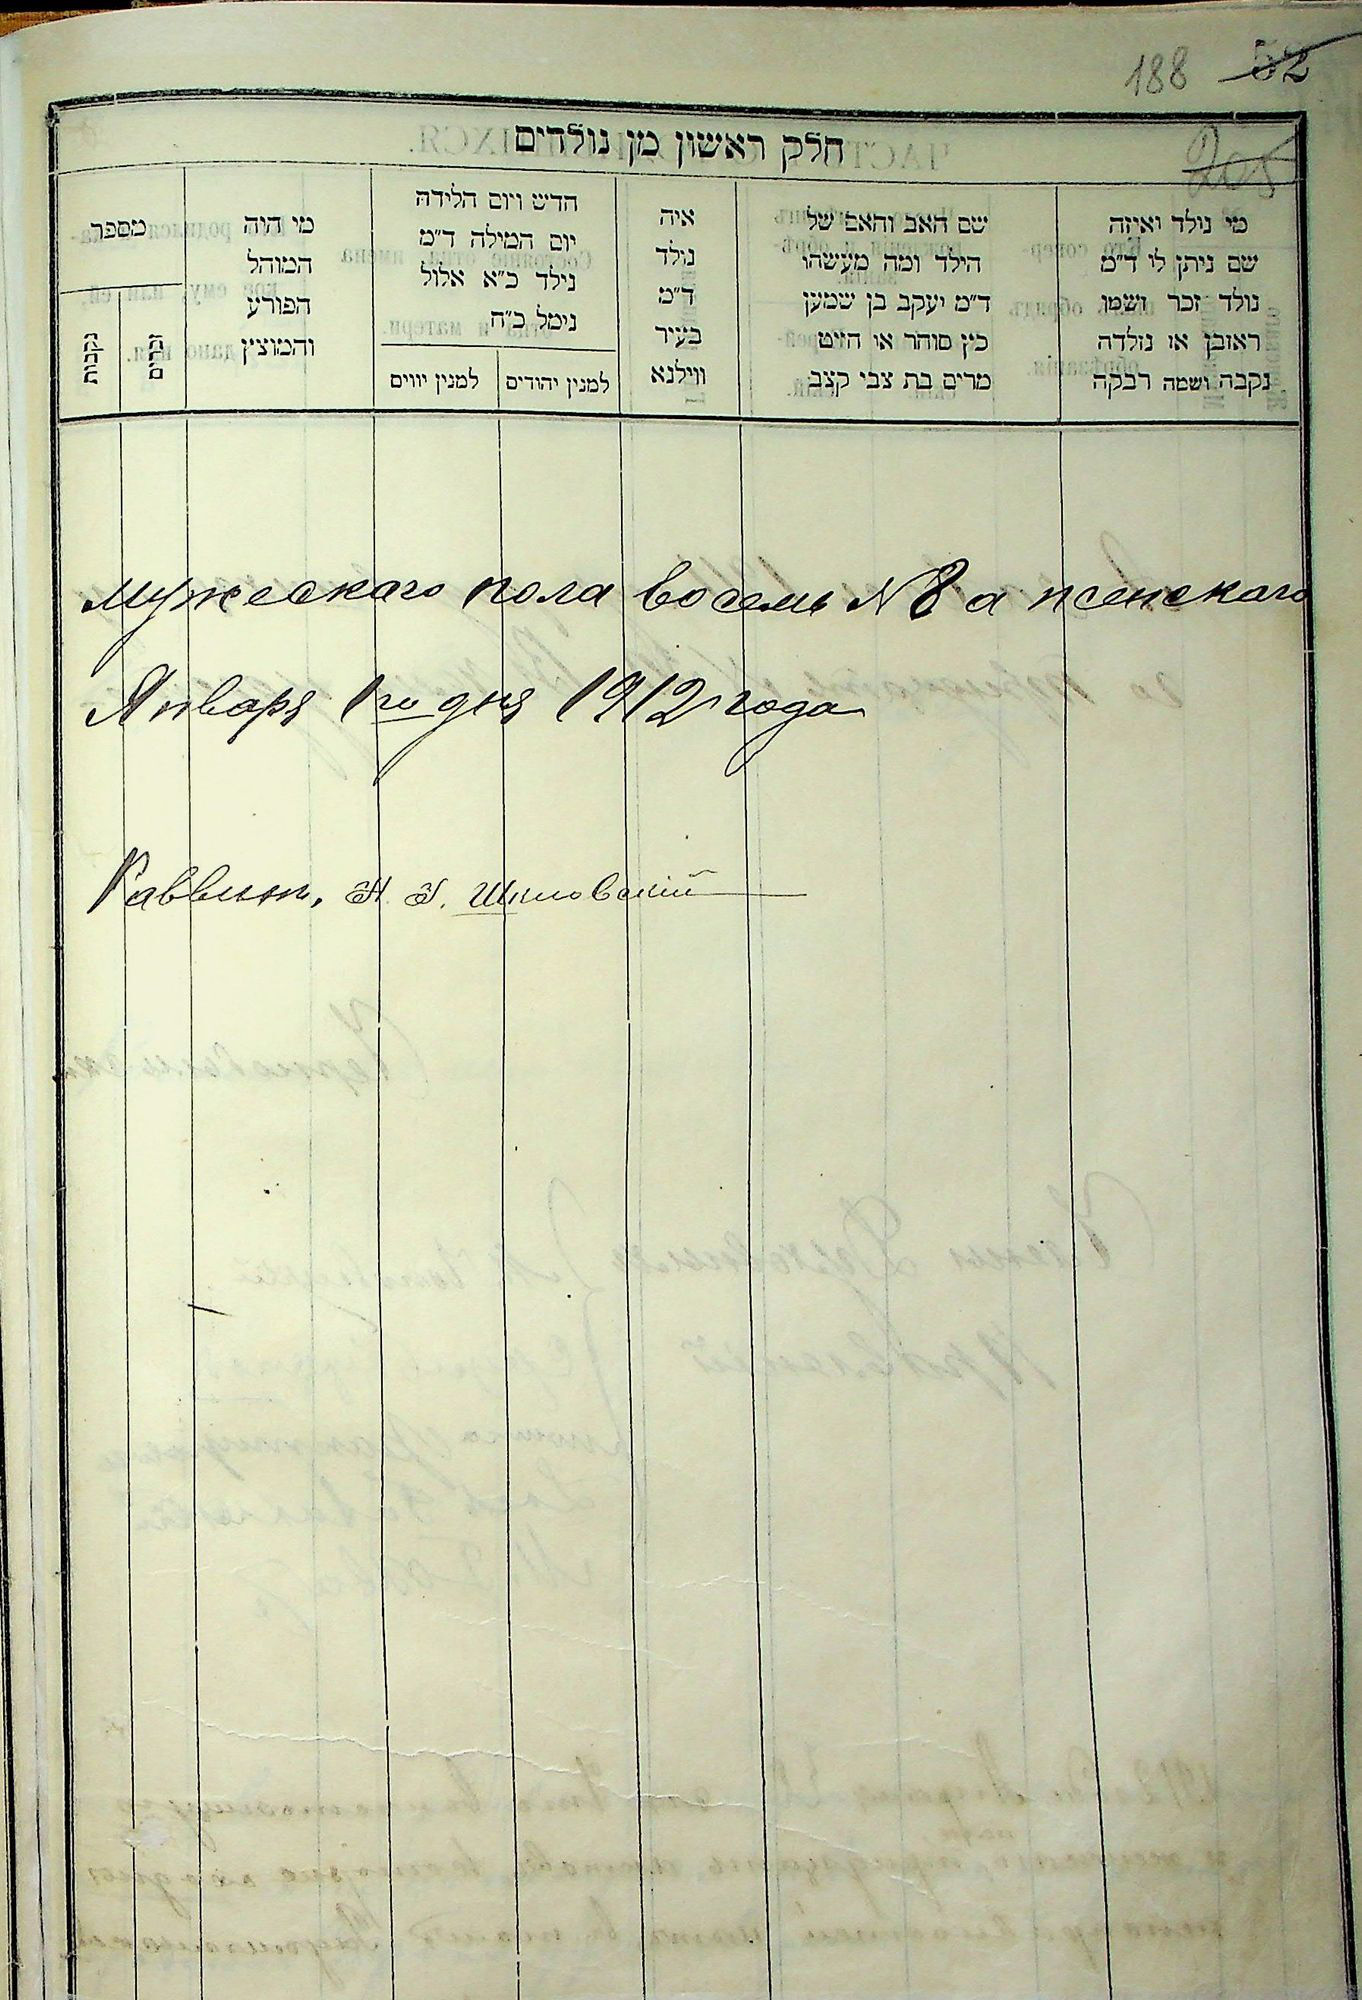 188 52
205
חלק ראשון מן נולדים
מי נולד ואיזה
שם ניתן לו ד״מ
נולד זכר ושמו
ראובן או נולדה
נקבה ושמה רבקה
שם האב והאם של
הילד ומה מעשהו
ד״מ יעקב בן שמעון
כ״ץ סוחר או חייט
מרים בת צבי קצב
איה
נולד
ד״מ
בעיר
ווילנא
חדש ויום הלידה
יום המילה ד״מ
נילד כ״א אלול
נימל כ״ח
למנין יהודים
למנין יווים
מי היה
המוהל
הפורע
והמוצץ
מספר
זכרים
נקבות
мужескаго пола восемь № 8 а женскаго
Января 1го дня 1912 года
Раввинъ, Шкловскій